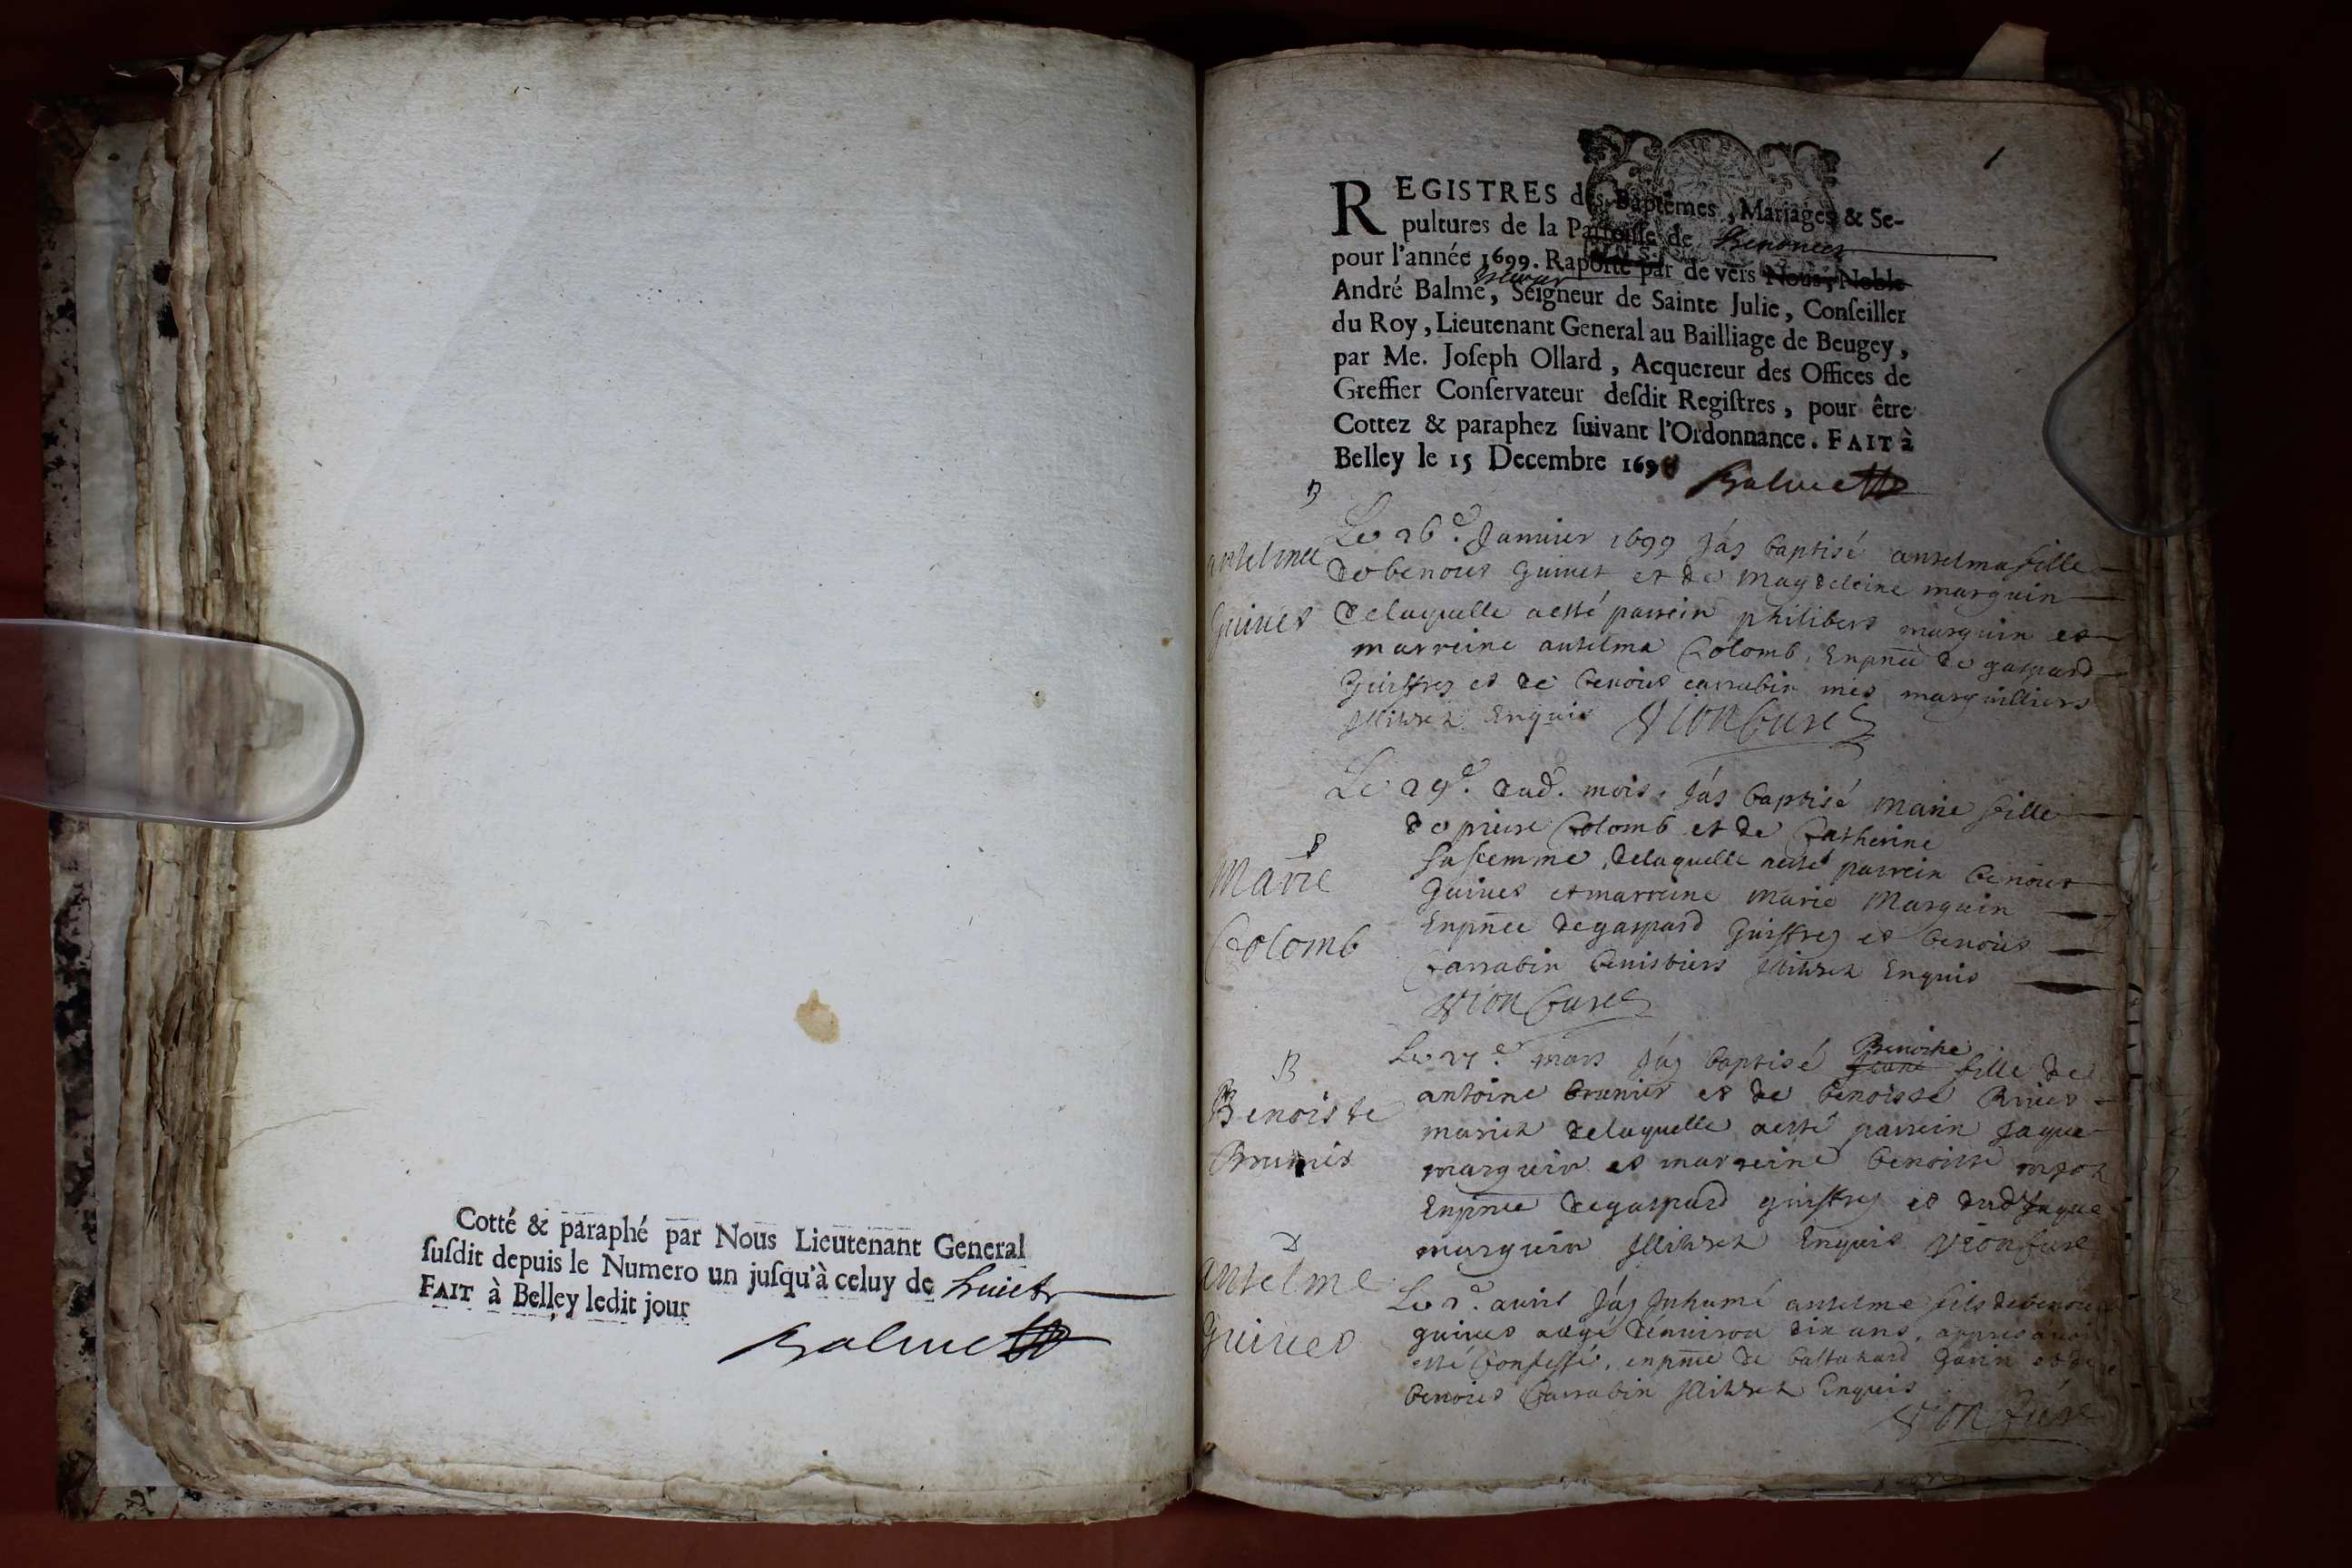 Cotté & paraphé par Nous Lieutenant General
ſuſdit depuis le Numero un juſqu'à celuy de huict
FAIT à Belley ledit jour
Balme
1
REGISTRES des Baptêmes, Mariages & Se-
pultures de la Parroiſſe de
pour l'année 1699. Raporté par de vers Nous, Noble
André Balme, Seigneur de Sainte Julie, Conſeiller
du Roy, Lieutenant General au Bailliage de Beugey,
par Me. Joſeph Ollard, Acquereur des Offices de
Greffier Conſervateur deſdit Regiſtres, pour être
Cottez & paraphez ſuivant l'Ordonnance. FAIT à
Belley le 15 Decembre 1698
Balme
B
antelme
Guines
Le 26e Januier 1699 J'ay baptisé antelma fille
de benoist guinet et de Magdeleine marguin
de laquelle a esté parrein philibert marguin et
marreine antelma Colomb, Enpñce de gaspard
Guiffrey et de benoist carrabin mes marguilliers
illitrez Enquis Vion Curé
B
Marie
Colomb
Le 29e dud. mois, J'ay baptisé marie fille
de pierre Colomb et de Catherine
sa femme, de laquelle a esté parrein benoist
guinet et marreine marie Marguin
Enpñce de gaspard Guiffrey et benoist
Carrabin illitrez Enquis
Vion Curé
B
Benoiste
Brunier
Le 27e mars J'ay baptisé Benoiste Jeane fille de
antoine brunier et de benoiste
mariez de laquelle a esté parrein Jaque
marguin et marreine benoiste
Enpñce de gaspard guiffrey et dud Jaque
marguin illitrez Enquis Vion Curé
antelme
Guinet
Le 2e auril J'ay Inhumé antelme fils de benoist
guinet aagé d'enuiron dix ans, appres auoir
esté Confessé, enpñce de baltazard et de
benoist Carrabin illitrez Enquis
Vion Curé